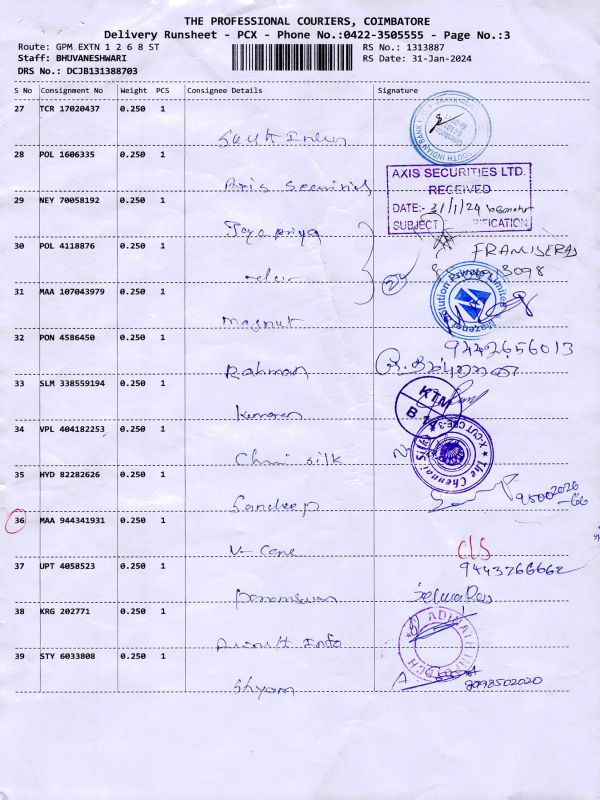 THE PROFESSIONAL COURIERS, COIMBATORE
Delivery Runsheet - PCX - Phone No.:0422-3505555 - Page No.:3
Route: GPM EXTN 1 2 6 8 ST
RS No.: 1313887
Staff: BHUVANESHWARI
RS Date: 31-Jan-2024
DRS No.: DCJB131388703
S No Consignment No Weight PCS Consignee Details Signature
27 TCR 17020437 0.250 1
South Indian
28 POL 1606335 0.250 1
Axis Securities
AXIS SECURITIES LTD.
RECEIVED
29 NEY 70058192 0.250 1
DATE:- 31/1/24
Jaya priya
SUBJECT
30 POL 4118876 0.250 1
Selva
31 MAA 107043979 0.250 1
Magnut
32 PON 4586450 0.250 1
9442656013
Rahman
33 SLM 338559194 0.250 1
KTM
Kumaran
34 VPL 404182253 0.250 1
The Chennai Silks
Chennai silk
35 HYD 82282626 0.250 1
Sandeep
36 MAA 944341931 0.250 1
V Care
C/S
37 UPT 4058523 0.250 1
9443766662
38 KRG 202771 0.250 1
ADINATH
39 STY 6033808 0.250 1
Shyam
8098502020